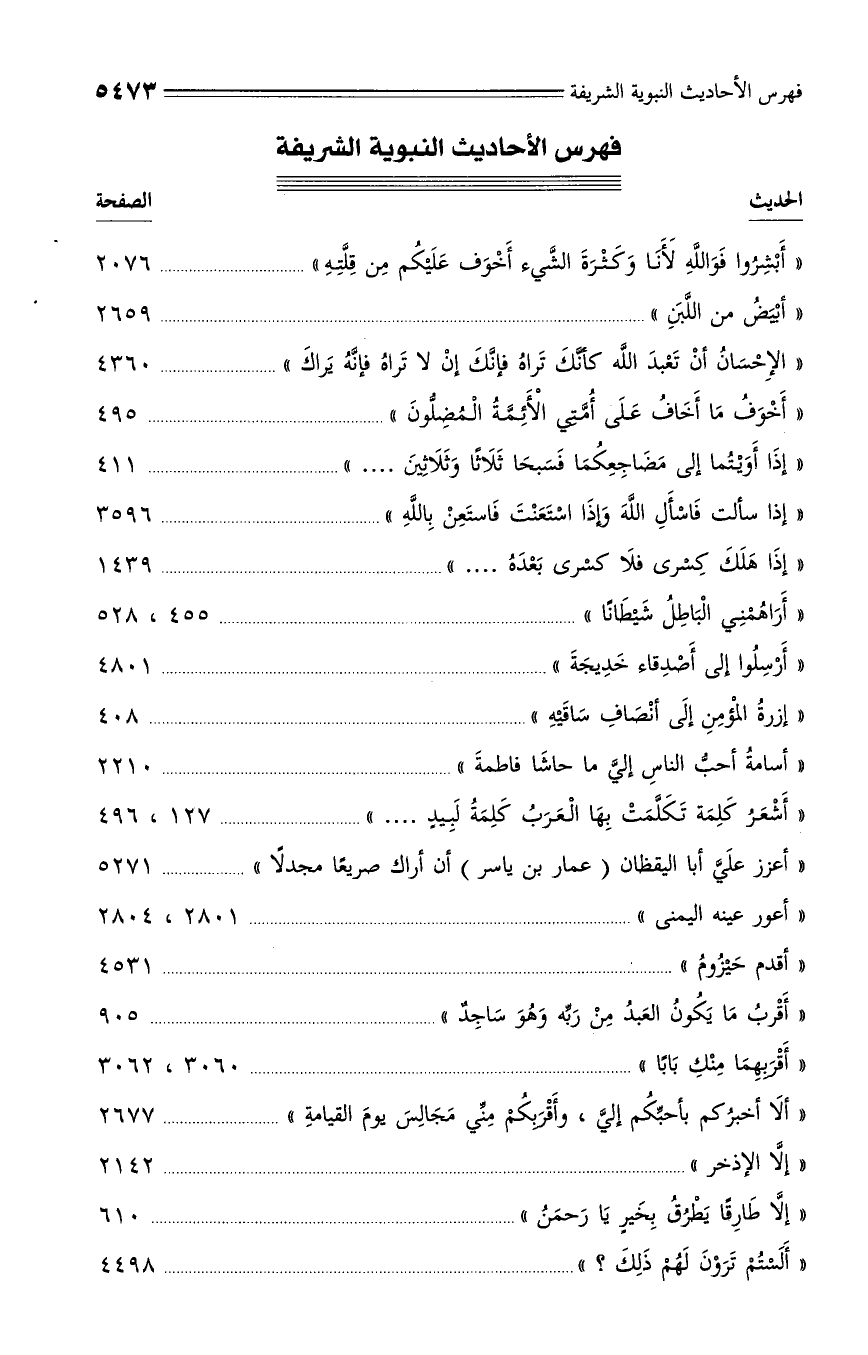 فهرس الأحاديث النبوية الشريفة ٥٤٧٣
فهرس الأحاديث النبوية الشريفة
الحديث الصفحة
« أَبْشِرُوا فَوَاللَّهِ لَأَنَا وَكَثْرَةَ الشَّيء أَخْوَف عَلَيْكُم مِن قِلَّتِهِ » ٢٠٧٦
« أبْيَضُ من اللَّبَنِ » ٢٦٥٩
« الإِحْسَانُ أنْ تَعْبدَ اللَّه كأنَّكَ تَراهُ فإنَّكَ إنْ لا تَراهُ فإنَّهُ يَراكَ » ٤٣٦٠
« أَخْوَفُ مَا أَخَافُ عَلَى أُمَّتِي الْأَئِمَّةُ الْمُضِلُّونَ » ٤٩٥
« إذَا أَوَيْتُما إلى مَضَاجِعِكُمَا فَسَبحَا ثَلَاثًا وَثَلَاثِينَ .... » ٤١١
« إذا سألت فَاسْأَلِ اللَّهَ وَإذَا اسْتَعَنْتَ فَاستَعِنْ بِاللَّهِ » ٣٥٩٦
« إذَا هَلَكَ كِسْرى فلَا كسْرى بَعْدَهُ .... » ١٤٣٩
« أَرَاهُمْنِي الْبَاطِلُ شَيْطَانًا » ٤٥٥ ، ٥٢٨
« أَرْسِلُوا إلى أَصْدِقاء خَدِيجَةَ » ٤٨٠١
« إزرةُ المْؤْمِنِ إلَى أنْصَافِ سَاقَيْهِ » ٤٠٨
« أسامةُ أحبُّ الناسِ إليَّ ما حاشَا فاطمةَ » ٢٢١٠
« أَشْعَرُ كَلِمَة تَكَلَّمَتْ بِهَا الْعَرَبُ كَلِمَةُ لَبِيدٍ .... » ١٢٧ ، ٤٩٦
« أعزز علَيَّ أبا اليقظان ( عمار بن ياسر ) أن أراك صريعًا مجدلًا » ٥٢٧١
« أعور عينه اليمنى » ٢٨٠١ ، ٢٨٠٤
« أقدم حَيْزُومُ » ٤٥٣١
« أَقْربُ مَا يَكُونُ العَبدُ مِنْ رَبِّه وَهُوَ سَاجِدٌ » ٩٠٥
« أَقْرَبِهِمَا مِنْكِ بَابًا » ٣٠٦٠ ، ٣٠٦٢
« ألَا أخبرُكم بأحبِّكُم إليَّ ، وأَقْرَبِكُمْ مِنِّي مَجَالِسَ يومَ القيامةِ » ٢٦٧٧
« إلَّا الإذخر » ٢١٤٢
« إلَّا طَارِقًا يَطْرُقُ بِخَيرٍ يَا رَحمَنُ » ٦١٠
« أَلَسْتُمْ تَرَوْنَ لَهُمْ ذَلِكَ ؟ » ٤٤٩٨